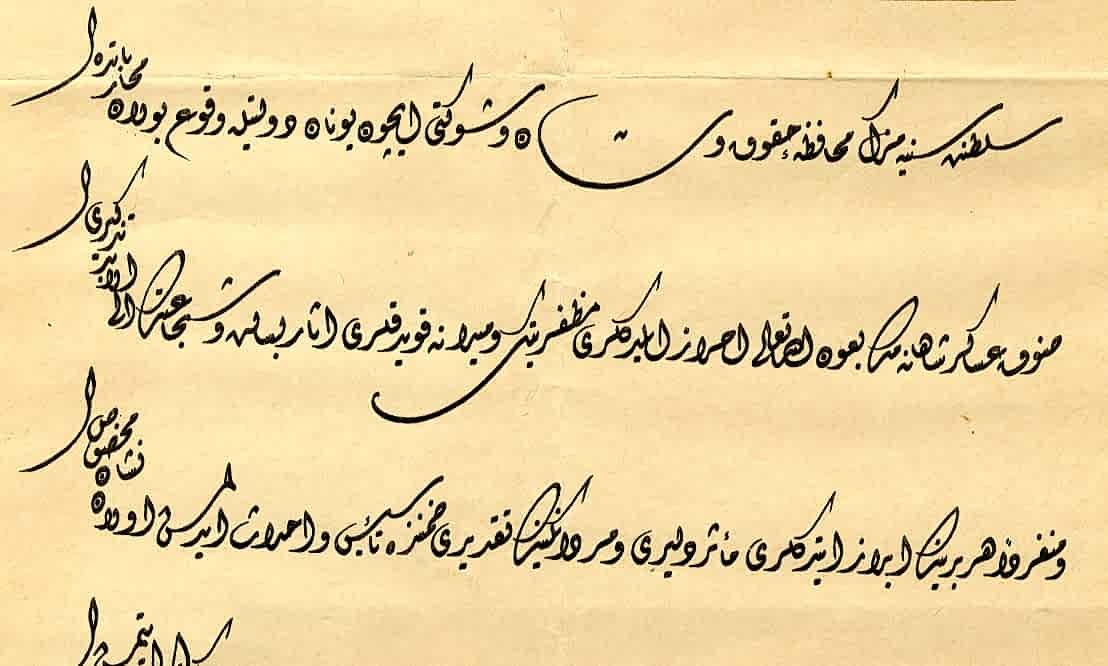 سلطنت سنیه مزك محافظهٔ حقوق و شان و شوكتی ایچون یونان دولتیله وقوع بولان محاربه ده
صنوف عساكر شاهانه مك بعون الله تعالی احراز ایلدكلری مظفریتك و میدانه قویدقلری اثار بسالت و شجاعتك الی الابد تذكیری
و منفردا هر برینك ابراز ایتدكلری مآثر دلیری و مردانكینك تقدیری ضمننده تأسیس و احداث ایدلمش اولان نشان مخصوص